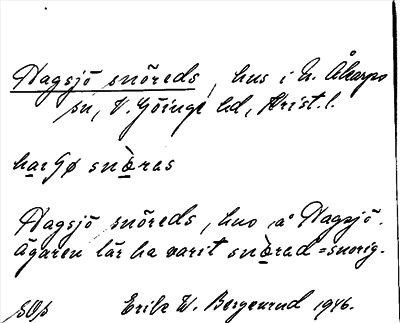 Hagsjö snöreds, hus i N. Åkarps
sn, V. Göinge hd, Krist. l.
snöras
Hagsjö snöreds, hus å Hagsjö.
Ägaren lär ha varit snörad = snorig.
Erik W. Bergenrud 1946.